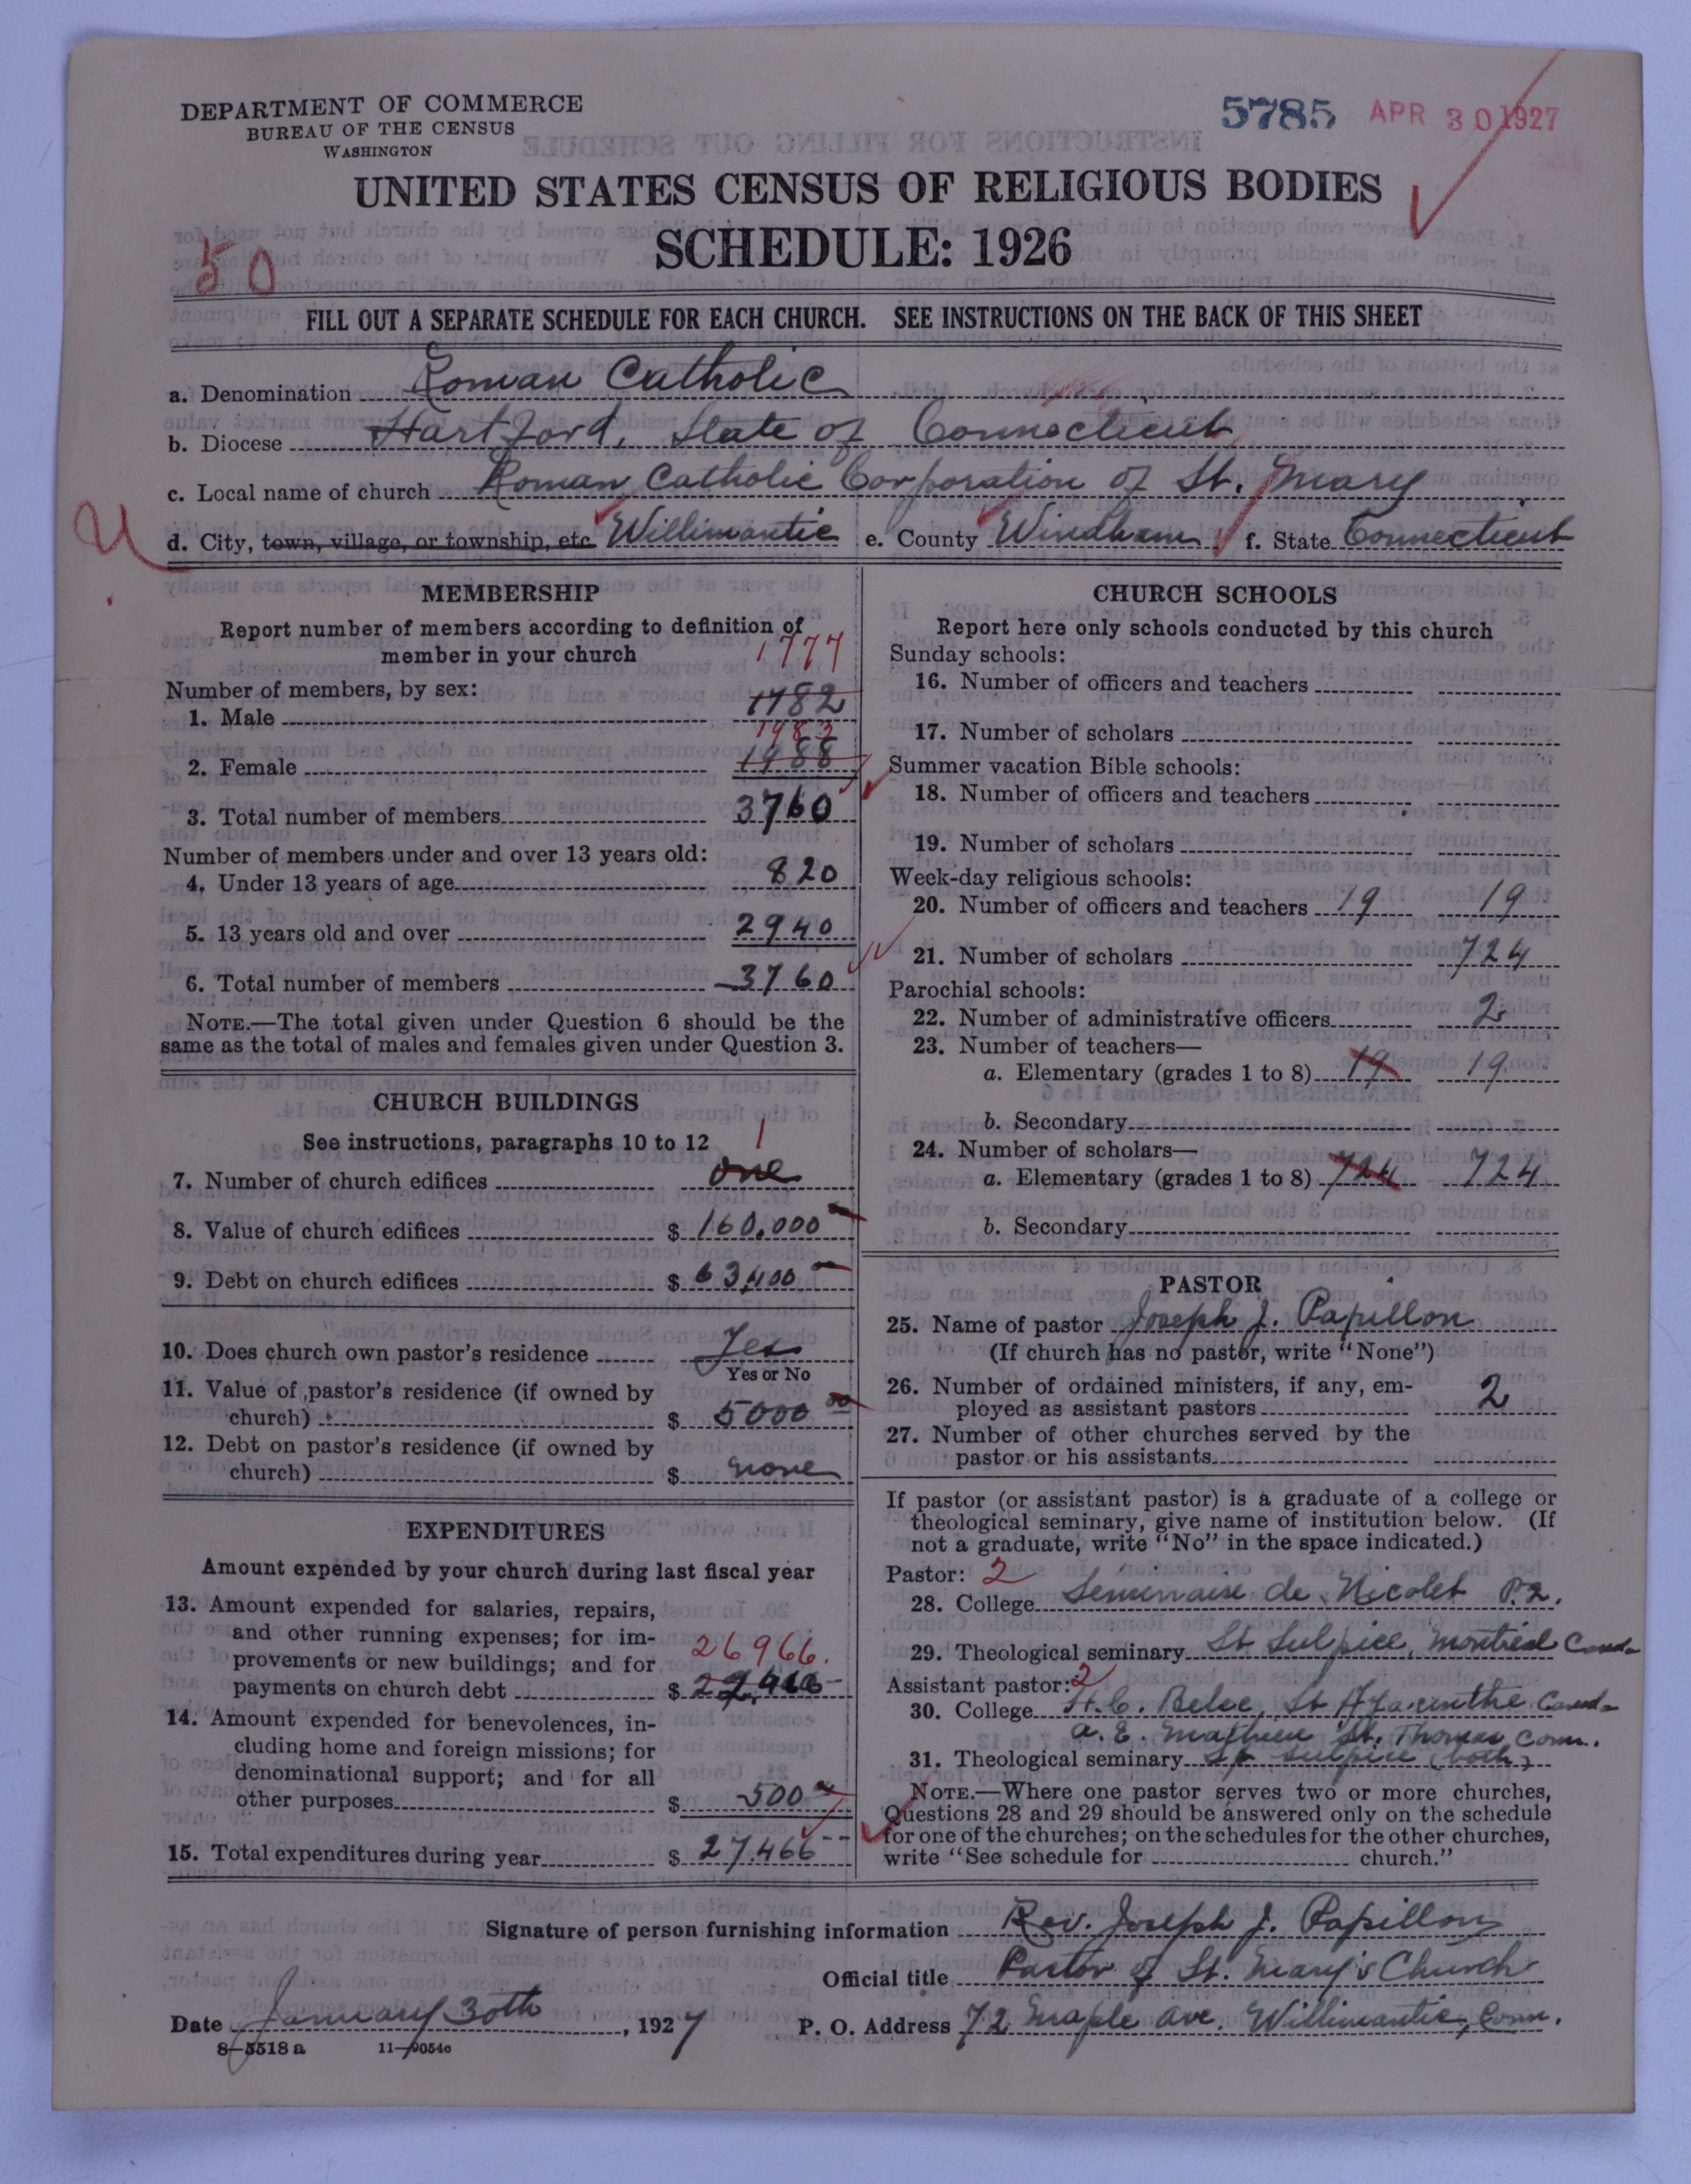 DEPARTMENT OF COMMERCE
BUREAU OF THE CENSUS
WASHINGTON
5785 APR 30 1927
UNITED STATES CENSUS OF RELIGIOUS BODIES
SCHEDULE: 1926
50
FILL OUT A SEPARATE SCHEDULE FOR EACH CHURCH. SEE INSTRUCTIONS ON THE BACK OF THIS SHEET
a. Denomination Roman Catholic
b. Diocese Hartford, State of Connecticut
c. Local name of church Roman Catholic Corporation of St. Mary
d. City, town, village, or township, etc. Willimantic e. County Windham f. State Connecticut
MEMBERSHIP
Report number of members according to definition of
member in your church
1777
Number of members, by sex:
1. Male 1782
1983
2. Female 1988
3. Total number of members 3760
Number of members under and over 13 years old:
4. Under 13 years of age 820
5. 13 years old and over 2940
6. Total number of members 3760
NOTE.—The total given under Question 6 should be the
same as the total of males and females given under Question 3.
CHURCH BUILDINGS
See instructions, paragraphs 10 to 12
1
7. Number of church edifices one
8. Value of church edifices $ 160.000
9. Debt on church edifices $ 63,400
10. Does church own pastor's residence Yes
Yes or No
11. Value of pastor's residence (if owned by
church) $ 5000 00
12. Debt on pastor's residence (if owned by
church) $ none
EXPENDITURES
Amount expended by your church during last fiscal year
13. Amount expended for salaries, repairs,
and other running expenses; for im-
provements or new buildings; and for 26966.
payments on church debt $
14. Amount expended for benevolences, in-
cluding home and foreign missions; for
denominational support; and for all
other purposes $ 500
15. Total expenditures during year $ 27.466
CHURCH SCHOOLS
Report here only schools conducted by this church
Sunday schools:
16. Number of officers and teachers
17. Number of scholars
Summer vacation Bible schools:
18. Number of officers and teachers
19. Number of scholars
Week-day religious schools:
20. Number of officers and teachers 19 19
21. Number of scholars 724
Parochial schools:
22. Number of administrative officers 2
23. Number of teachers—
a. Elementary (grades 1 to 8) 19 19
b. Secondary
24. Number of scholars—
a. Elementary (grades 1 to 8) 724 724
b. Secondary
PASTOR
25. Name of pastor Joseph J. Papillon
(If church has no pastor, write "None")
26. Number of ordained ministers, if any, em-
ployed as assistant pastors 2
27. Number of other churches served by the
pastor or his assistants
If pastor (or assistant pastor) is a graduate of a college or
theological seminary, give name of institution below. (If
not a graduate, write "No" in the space indicated.)
Pastor: 2
28. College Seminaire de Nicolet P.2.
29. Theological seminary St Sulpice, Montreal Canada
Assistant pastor: 2
30. College St Hyacinthe Canada
a. E. Mathieu St. Thomas Conn.
31. Theological seminary St Sulpice (both)
NOTE.—Where one pastor serves two or more churches,
Questions 28 and 29 should be answered only on the schedule
for one of the churches; on the schedules for the other churches,
write "See schedule for church."
Signature of person furnishing information Rev. Joseph J. Papillon
Official title Pastor of St. Mary's Church
Date January 30th, 1927 P. O. Address 72 Maple Ave. Willimantic, Conn.
8—5518 a 11—9054c